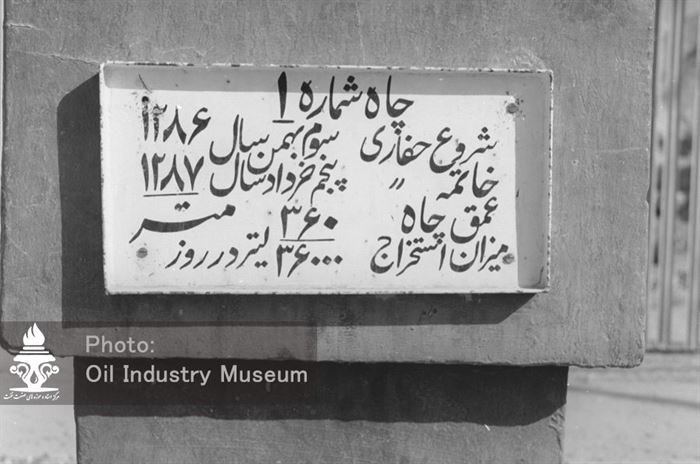 چاه شماره ۱
شروع حفاری سوم بهمن سال ۱۲۸۶
خاتمه " پنجم خرداد سال ۱۲۸۷
عمق چاه ۳۶۰ متر
میزان استخراج ۳۶۰۰۰ لیتر در روز
Photo:
Oil Industry Museum
مرکز اسناد و موزه‌های صنعت نفت